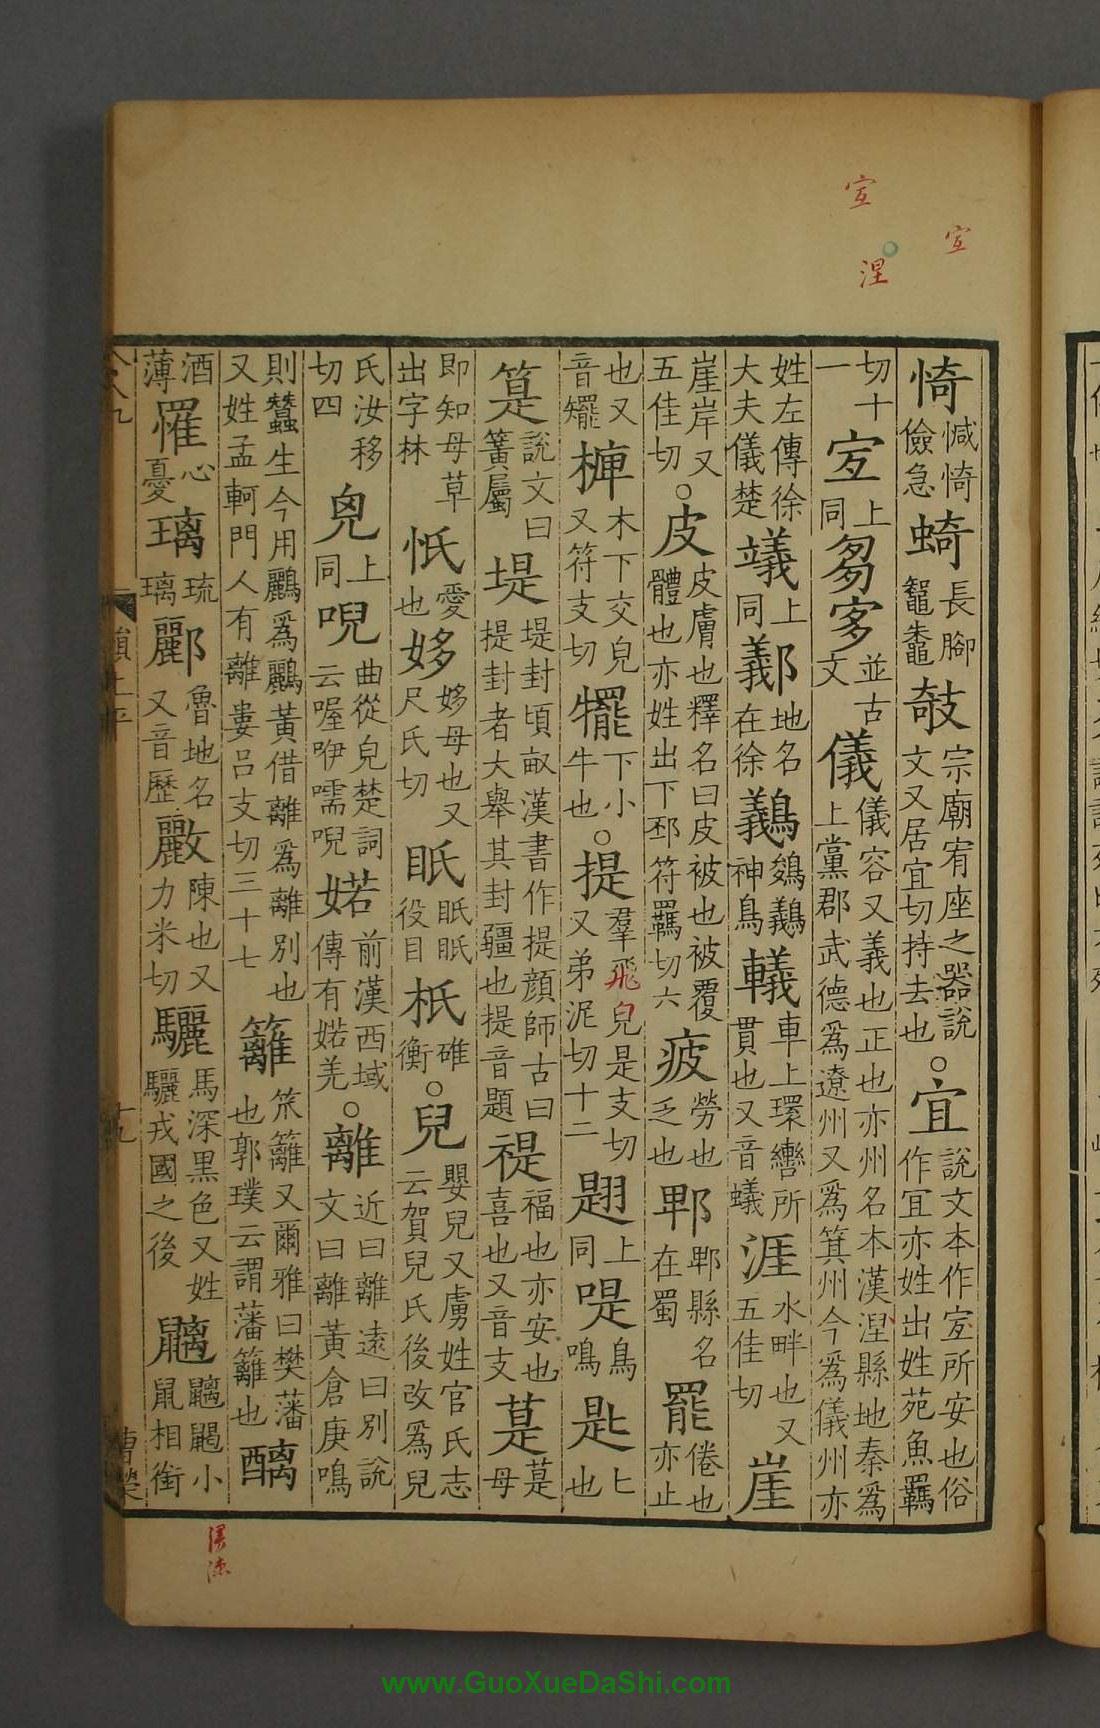 㥓㦗㥓儉急䗁長腳鼅鼄攲宗廟宥座之器說文又居宜切持去也○宜說文本作宐所安也俗作宜亦姓出姓苑魚羈
切十一宐上同𡖊㝖並古文儀儀容又義也正也亦州名本漢湼縣地秦爲上黨郡武德爲遼州又爲箕州今爲儀州亦
姓左傳徐大夫儀楚㕒上同鄯地名在徐鸃鵕鸃神鳥轙車上環轡所貫也又音蟻涯水畔也又五佳切崖
崖岸又五佳切○皮皮膚也釋名曰皮被也被覆體也亦姓出下邳符羈切六疲勞也乏也郫郫縣名在蜀罷倦也亦止
也又音矲椑木下交皃又符支切犤下小牛也○提羣飛皃是支切又弟泥切十二翅上同啼鳥鳴匙匕也
箟說文曰簧屬堤堤封頃畝漢書作提顏師古曰提封者大舉其封疆也提音題禔福也亦安也喜也又音支䓳䓳母
即知母草出字林忯愛也姼姼母也又尺氏切眂眂眂役目柢碓衡○兒嬰兒又虜姓官氏志云賀兒氏後改爲兒
氏汝移切四皃上同唲曲從皃楚詞云喔咿嚅唲婼前漢西域傳有婼羌○離近曰離遠曰別說文曰離黃倉庚鳴
則蠶生今用鸝爲鸝黃借離爲離別也又姓孟軻門人有離婁呂支切三十七籬笊籬又爾雅曰樊藩也郭璞云謂藩籬也醨
酒薄罹心憂璃琉璃酈魯地名又音歷𢿛陳也又力米切驪馬深黑色又姓驪戎國之後䍦䍦鼳小鼠相銜
鎮上平
十九
曹榮
宐
宐
湼
www.GuoXueDaShi.com